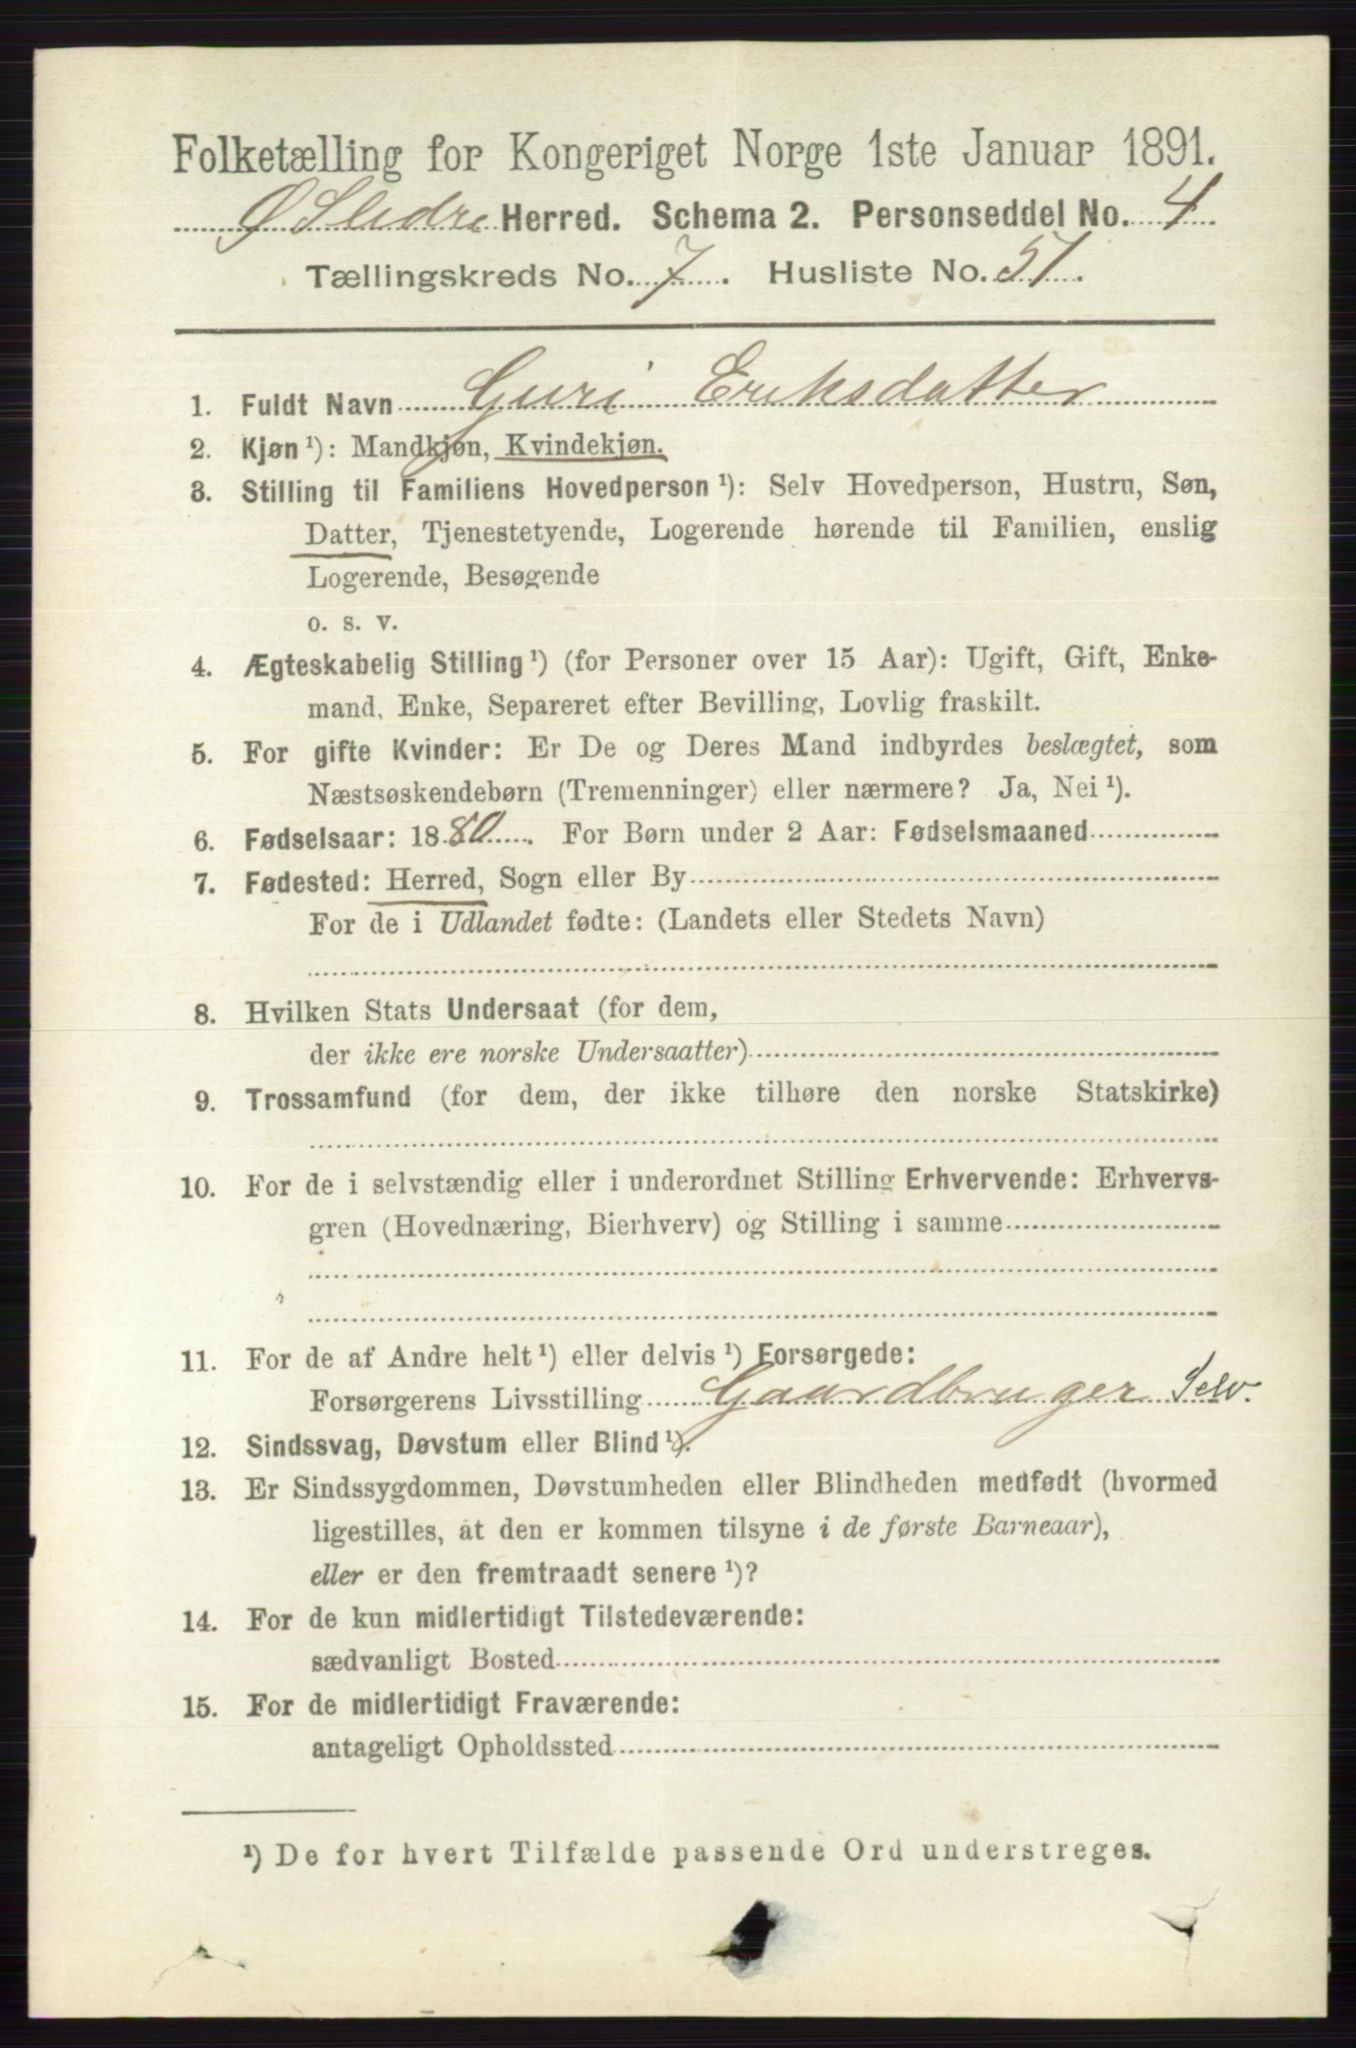 Folketælling for Kongeriget Norge 1ste Januar 1891.
Ø Slidre Herred. Schema 2. Personseddel No. 4
Tællingskreds No. 7. Husliste No. 51.
1. Fuldt Navn Guri Eriksdatter
2. Kjøn¹): Mandkjøn, Kvindekjøn.
3. Stilling til Familiens Hovedperson¹): Selv Hovedperson, Hustru, Søn,
Datter, Tjenestetyende, Logerende hørende til Familien, enslig
Logerende, Besøgende
o. s. v.
4. Ægteskabelig Stilling¹) (for Personer over 15 Aar): Ugift, Gift, Enke-
mand, Enke, Separeret efter Bevilling, Lovlig fraskilt.
5. For gifte Kvinder: Er De og Deres Mand indbyrdes beslægtet, som
Næstsøskendebørn (Tremenninger) eller nærmere? Ja, Nei¹).
6. Fødselsaar: 1880. For Børn under 2 Aar: Fødselsmaaned
7. Fødested: Herred, Sogn eller By
For de i Udlandet fødte: (Landets eller Stedets Navn)
8. Hvilken Stats Undersaat (for dem,
der ikke ere norske Undersaatter)
9. Trossamfund (for dem, der ikke tilhøre den norske Statskirke)
10. For de i selvstændig eller i underordnet Stilling Erhvervende: Erhvervs-
gren (Hovednæring, Bierhverv) og Stilling i samme
11. For de af Andre helt¹) eller delvis¹) Forsørgede:
Forsørgerens Livsstilling Gaardbruger Selv.
12. Sindssvag, Døvstum eller Blind¹).
13. Er Sindssygdommen, Døvstumheden eller Blindheden medfødt (hvormed
ligestilles, at den er kommen tilsyne i de første Barneaar),
eller er den fremtraadt senere¹)?
14. For de kun midlertidigt Tilstedeværende:
sædvanligt Bosted
15. For de midlertidigt Fraværende:
antageligt Opholdssted
¹) De for hvert Tilfælde passende Ord understreges.